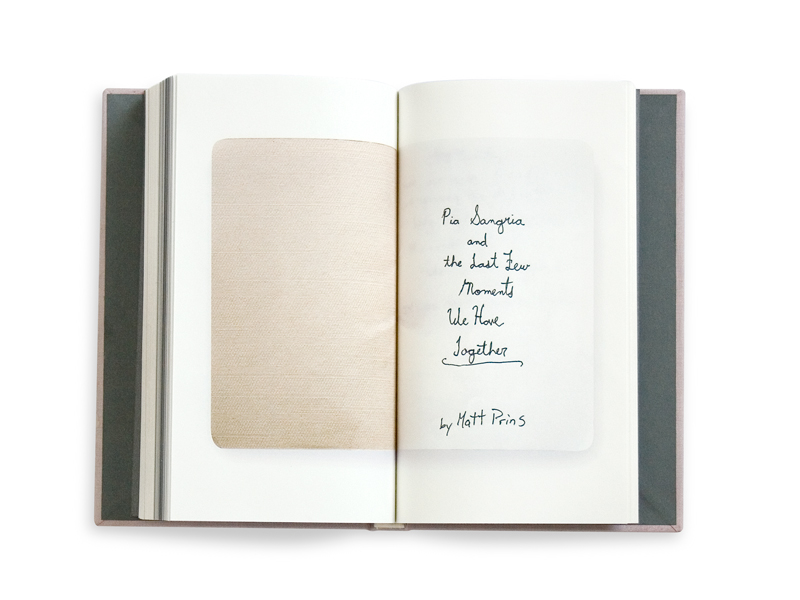 Pia Sangria
and
the Last Few
Moments
We Have
Together
by Matt Prins